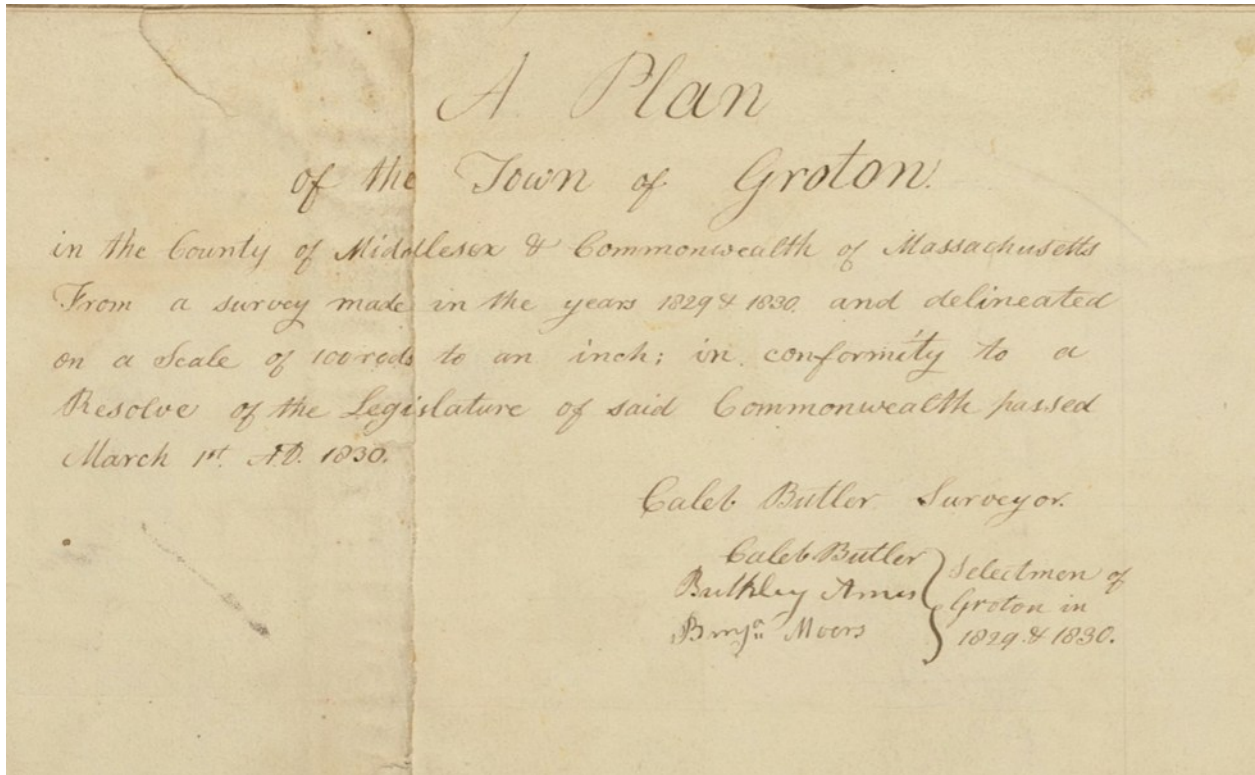 A Plan
of the Town of Groton.
in the County of Middlesex & Commonwealth of Massachusetts
From a survey made in the years 1829 & 1830. and delineated
on a Scale of 100 rods to an inch; in conformity to a
Resolve of the Legislature of said Commonwealth passed
March 1st. A.D. 1830.
Caleb Butler Surveyor.
Caleb Butler
Bulkley Ames
Benjan Moors
Selectmen of
Groton in
1829 & 1830.